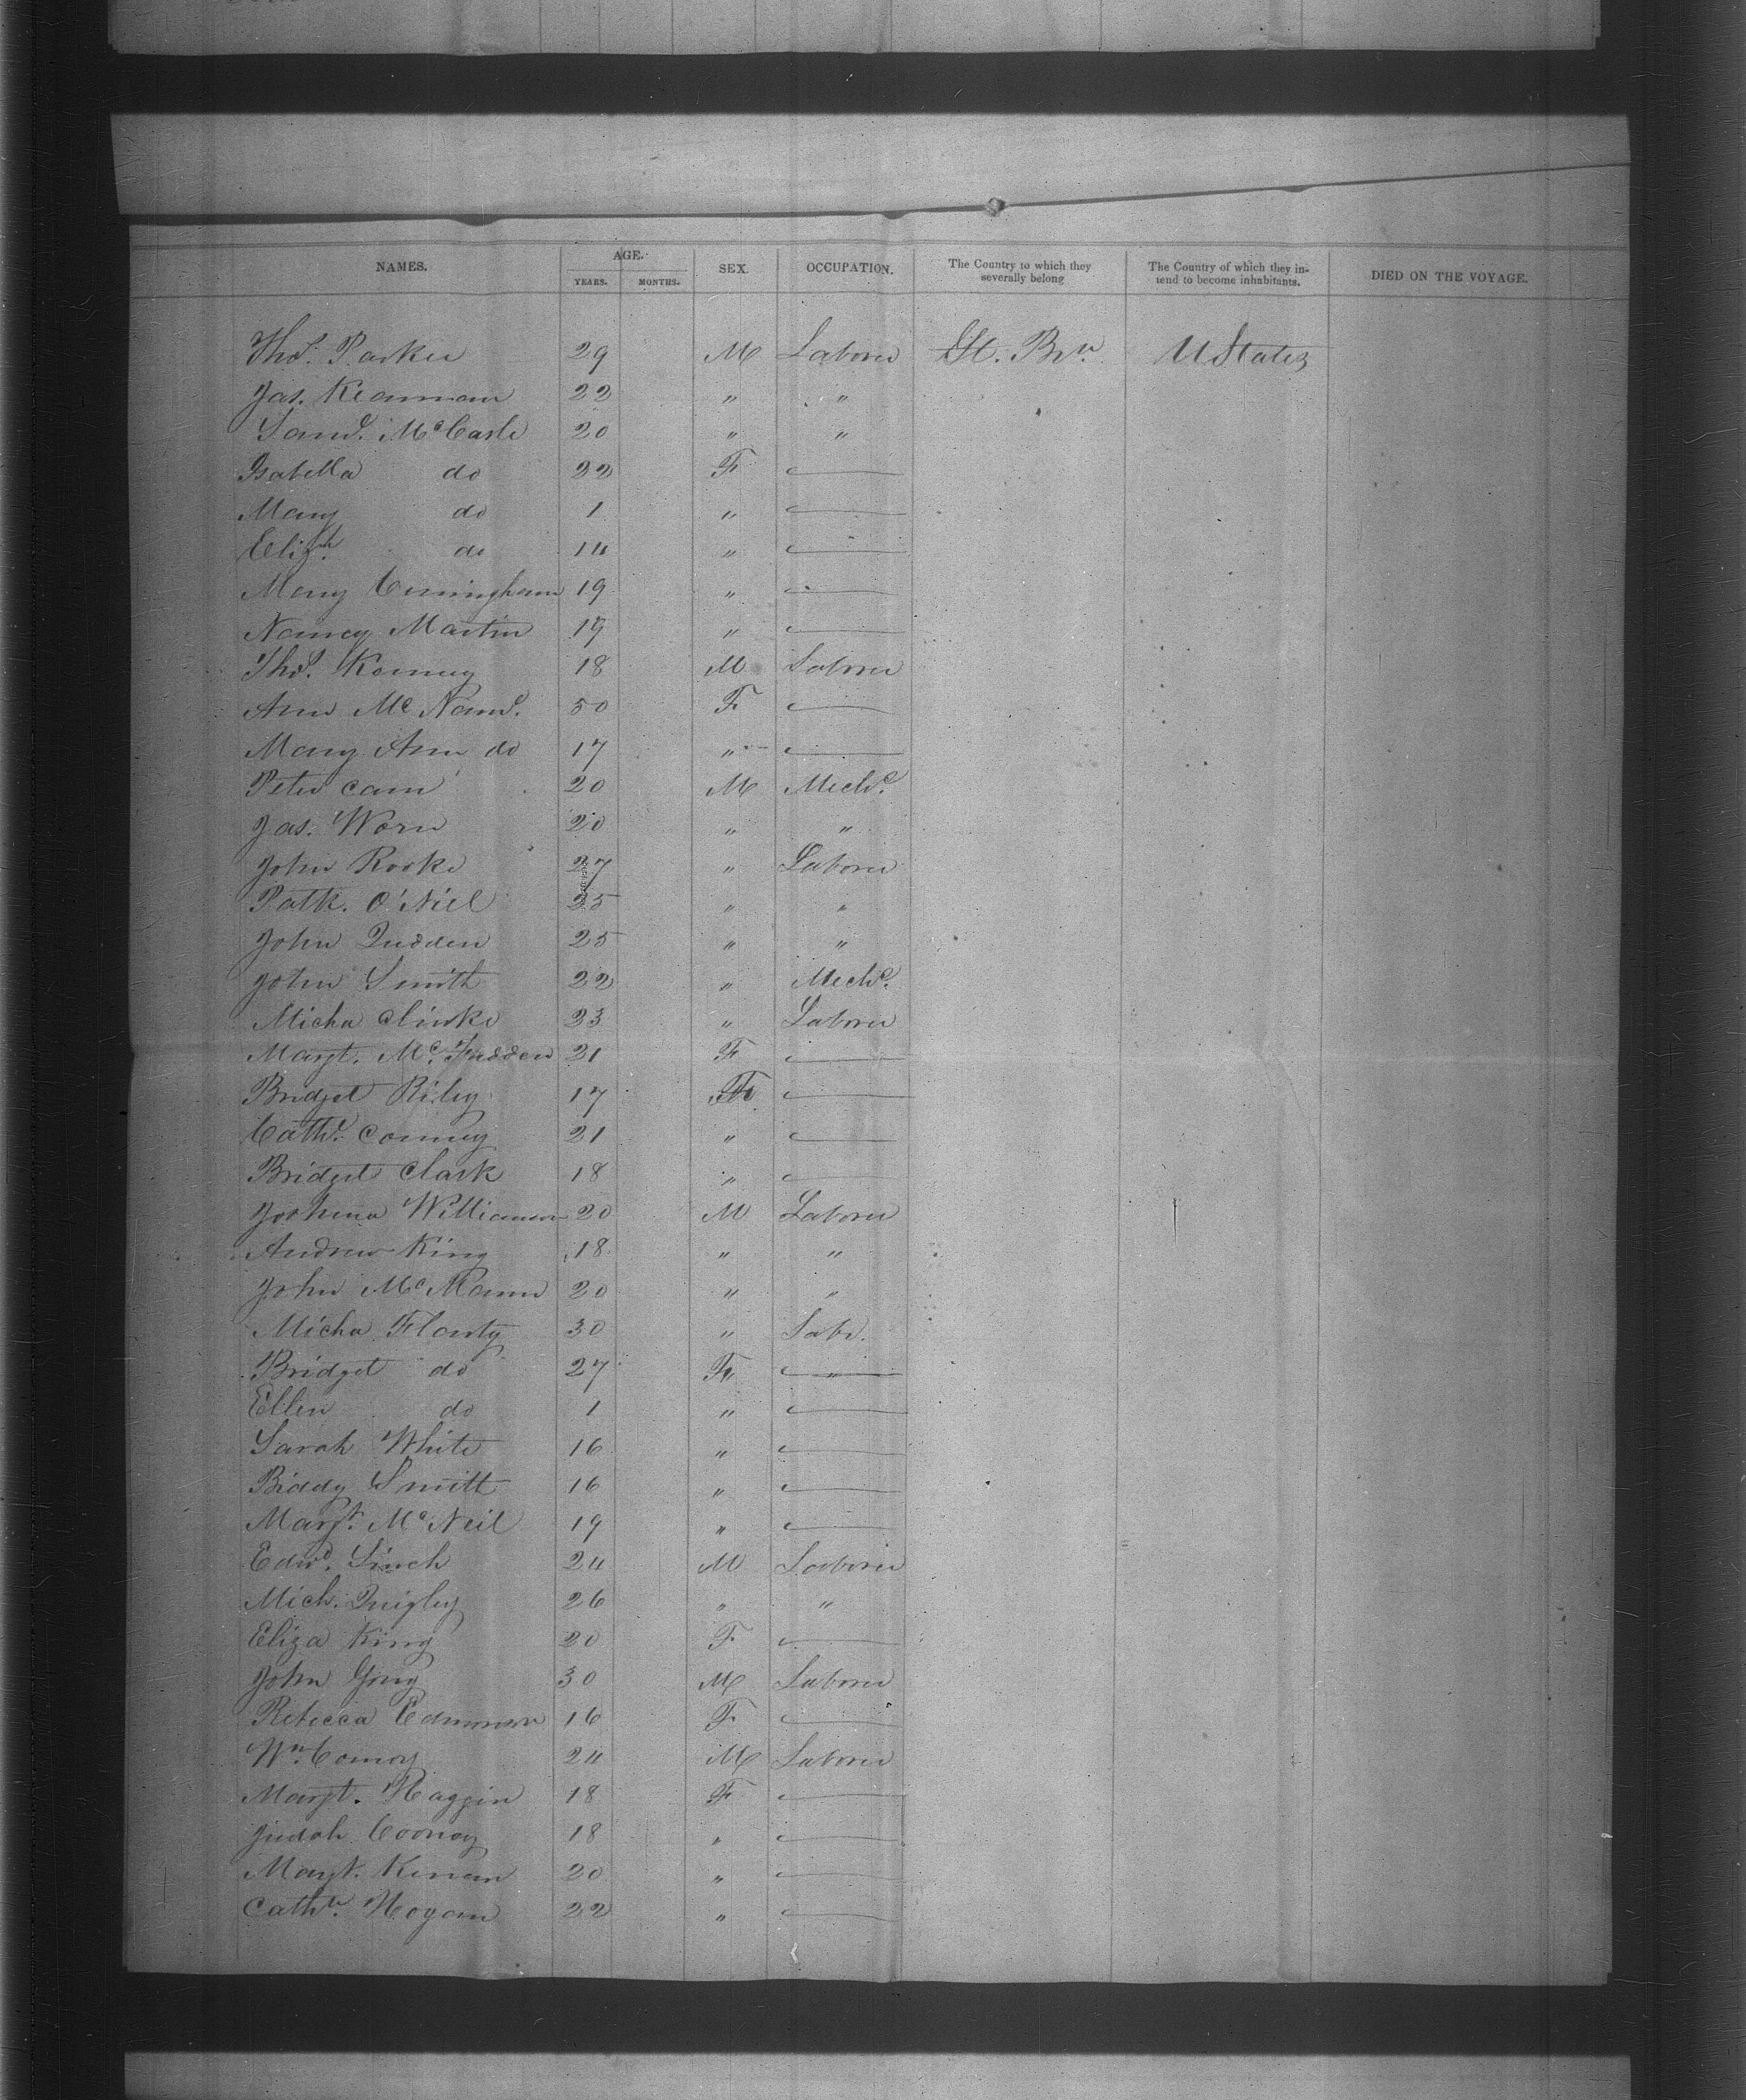 NAMES. AGE. YEARS. MONTHS. SEX. OCCUPATION. The Country to which they severally belong The Country of which they intend to become inhabitants. DIED ON THE VOYAGE.
Thos. Parker 29 M Laborer Gt. Brn. U States
Jas. Kiernan 22 " "
Saml. McCarle 20 " "
Isabella do 22 F
Mary do 1 "
Elizh. do 14 "
Mary Cuningham 19 "
Nancy Martin 19 "
Thos. 18 M Laborer
Ann Mc 50 F
Mary Ann do 17 "
Peter Cain 20 M Mechc.
Jas. Worn 20 " "
John Rooke 27 " Laborer
Patk. O'Niel 25 " "
John Dudden 25 " "
John Smith 22 " Mechc.
Micha Clinke 23 " Laborer
Margt. McFadden 21 F
Bridget Riley 17 F
Cathe. Conney 21 "
Bridget Clark 18 "
Joshua Williamson 20 M Laborer
Andrew King 18 " "
John McMann 20 " "
Micha Flanty 30 " Labr.
Bridget do 27 F "
Ellen do 1 "
Sarah White 16 "
Biddy Smitt 16 "
Margt. McNeil 19 "
Edwd. Linch 24 M Laborer
Mich. Quigley 26 " "
Eliza King 20 F
John 30 M Laborer
Rebecca Edmonson 16 F
Wm. Conroy 24 M Laborer
Margt. Haggin 18 F
Judah Cooney 18 "
Margt. Kinan 20 "
Cathn. Hogan 22 "